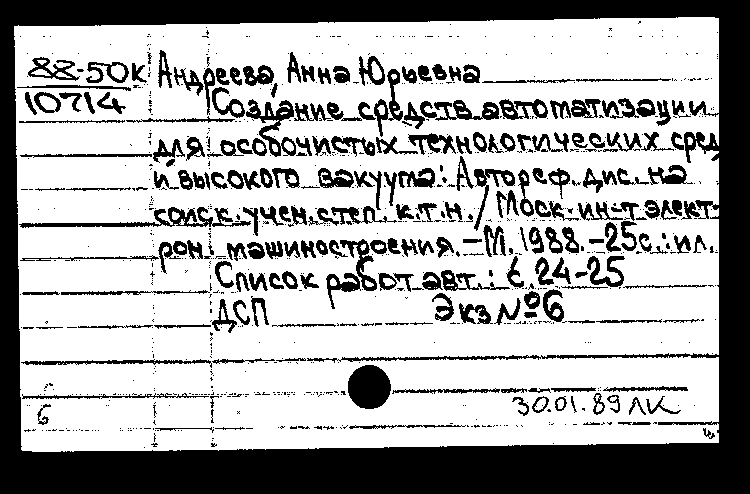 88-50к Андреева, Анна Юрьевна
10714 Создание средств автоматизации
для особочистых технологических сред
и высокого вакуума: Автореф. дис. на
соиск. учен. степ. к.т.н. / Моск. ин-т элект-
рон. машиностроения. - М. 1988. - 25с.: ил.
Список работ авт.: с. 24-25
ДСП Экз № 6
б 30.01.89 ЛК